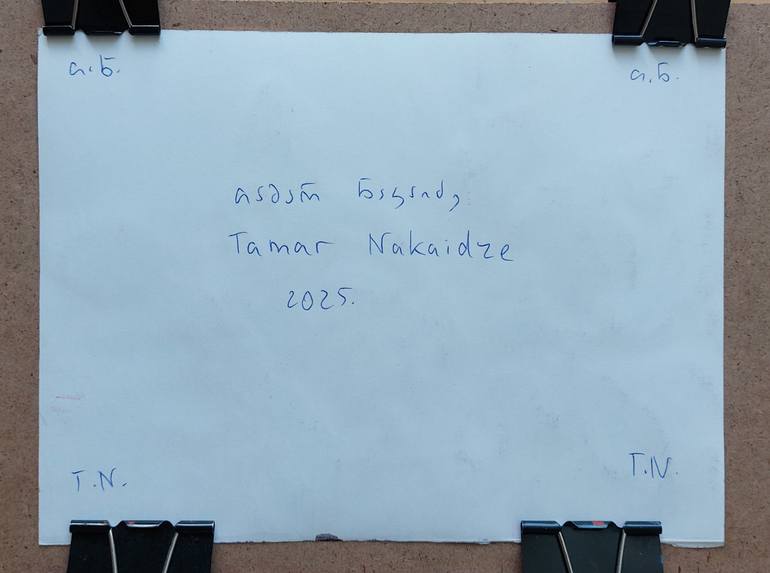 თ.ნ. თ.ნ.
თამარ ნაკაიძე
Tamar Nakaidze
2025.
T.N. T.N.